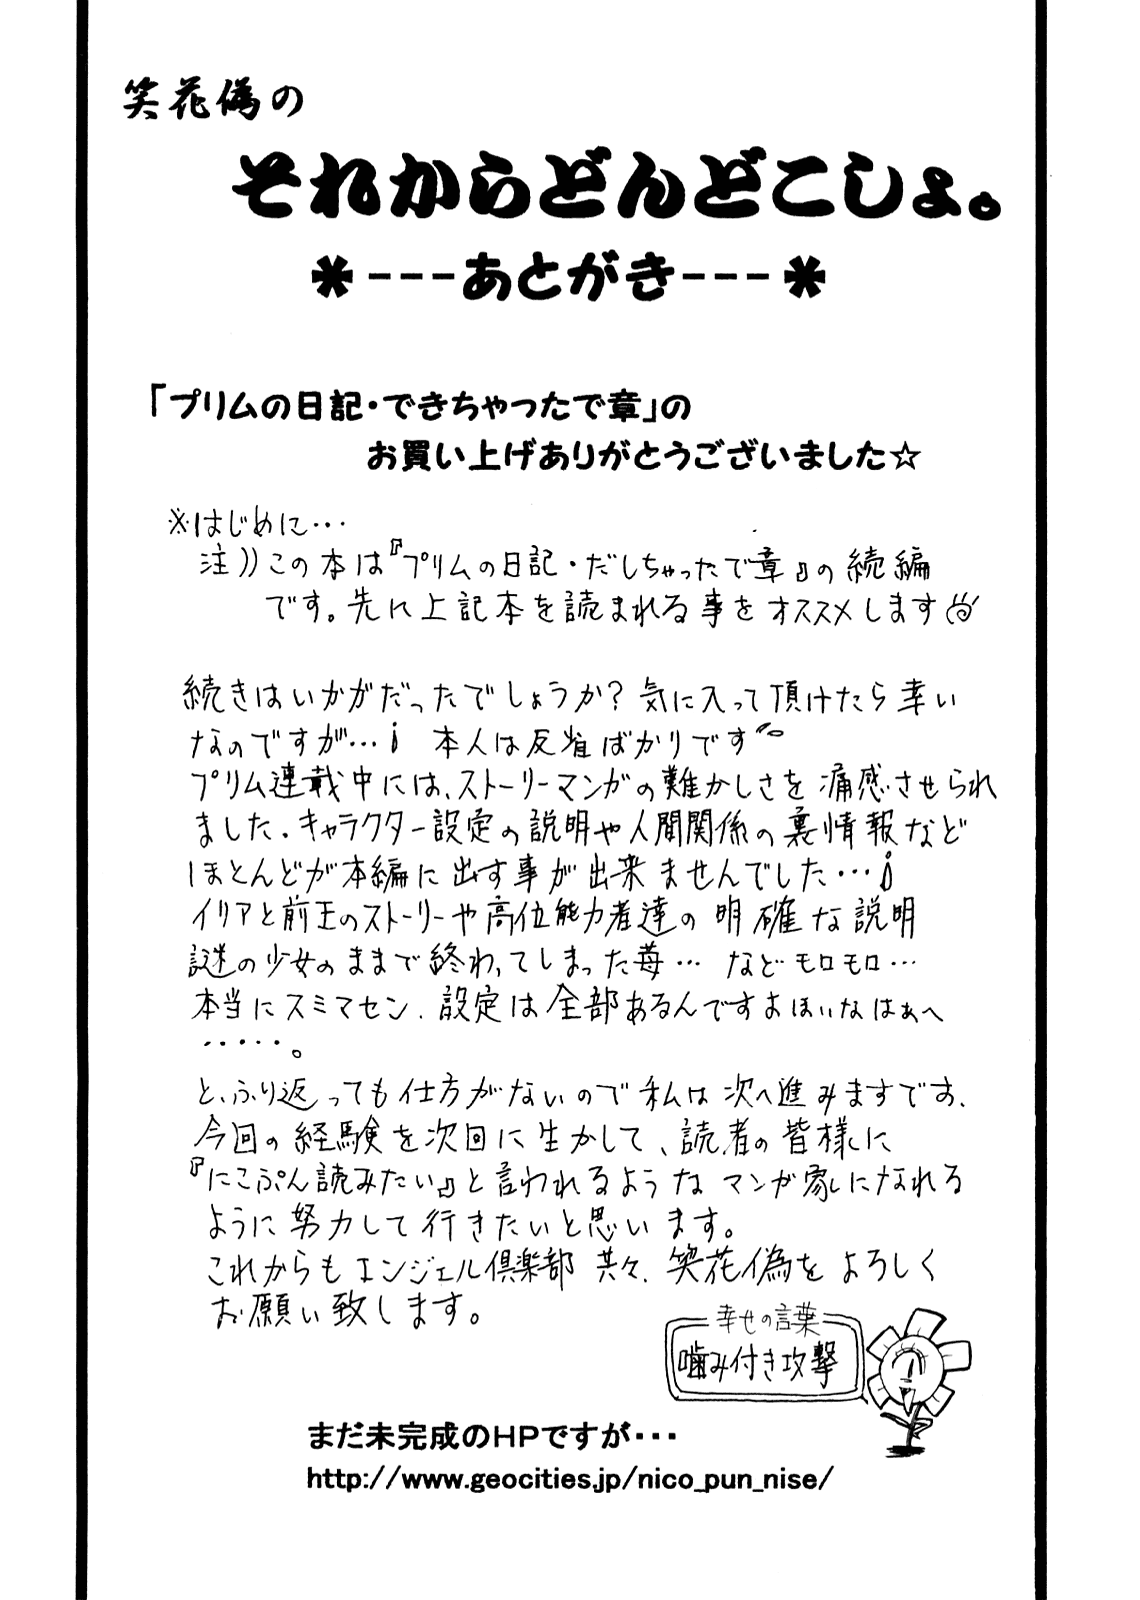 笑花偽の
それからどんどこしょ。
*---あとがき---*
「プリムの日記・できちゃったで章」の
お買い上げありがとうございました☆
※はじめに・・・
注))この本は『プリムの日記・だしちゃったで章』の続編
です。先に上記本を読まれる事をオススメします
続きはいかがだったでしょうか?気に入って頂けたら幸い
なのですが…¡ 本人は反省ばかりです
プリム連載中には、ストーリーマンガの難かしさを痛感させられ
ました。キャラクター設定の説明や人間関係の裏情報など
ほとんどが本編に出す事が出来ませんでした…¡
イリアと前王のストーリーや高位能力者達の明確な説明
謎の少女のままで終わってしまった苺… などモロモロ…
本当にスミマセン、設定は全部あるんですよほいなはぁへ
・・・・・。
と、ふり返っても仕方がないので私は次へ進みますです、
今回の経験を次回に生かして、読者の皆様に
『にこぷん読みたい』と言われるようなマンガ家になれる
ように努力して行きたいと思います。
これからもエンジェル倶楽部共々、笑花偽をよろしく
お願い致します。
幸せの言葉
噛み付き攻撃
まだ未完成のHPですが・・・
http://www.geocities.jp/nico_pun_nise/